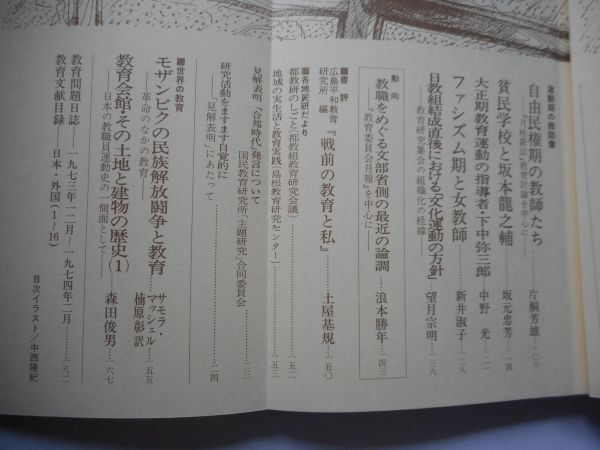 激動期の教師像
自由民権期の教師たち
――『月桂新誌』教育討論を中心に――
片桐芳雄…一〇六
貧民学校と坂本龍之輔
坂元忠芳…一一四
大正期教育運動の指導者・下中弥三郎
中野 光…一二一
ファシズム期と女教師
新井淑子…一二八
日教組結成直後における「文化運動の方針」
――教育研究集会の組織化の経緯――
望月宗明…一三六
動向
教職をめぐる文部省側の最近の論調
――『教育委員会月報』を中心に――
浪本勝年…一四三
■書評
広島平和教育研究所 編
『戦前の教育と私』
土屋基規…一五〇
■各地民研だより
都教研のしごと(都教組教育研究会議)…一五二
地域の実生活と教育実践(島根教育研究センター)…一五三
見解表明『「合邦時代」発言について
国民教育研究所「主題研究」合同委員会…一三三
研究活動をますます自覚的に
――「見解表明」にあたって…一三四
■世界の教育
モザンビクの民族解放闘争と教育
――革命のなかの教育――
サモラ・マッシェル
楠原彰 訳…一五五
教育会館・その土地と建物の歴史(1)
――日本の教職員運動史の一側面として――
森田俊男…一六七
教育問題日誌 一九七三年一二月~一九七四年二月…一八二
教育文献目録 日本・外国(1~16)
目次イラスト/中西隆紀